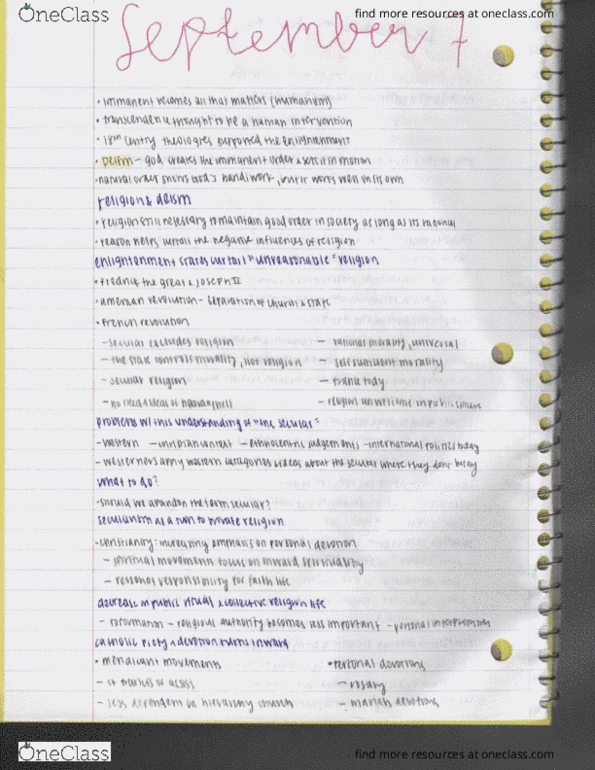 OneClass find more resources at oneclass.com
September 7
• immanent becomes all that matters (humanism)
• transcendence thought to be a human intervention
• 18th century theologies supported the enlightenment
• Deism - god creates the immanent order & sets it in motion
• natural order shows God's handiwork, but it works well on its own
religion & deism
• religion still necessary to maintain good order in society as long as its rational
• reason helps curtail the negative influences of religion
enlightenment states curtail "unreasonable" religion
• fredrick the great & joseph II
• american revolution - separation of church & state
• french revolution
- secular excludes religion - rational morality, universal
- the state controls morality, not religion - self sufficient morality
- secular religion - france today
- no need ideas of heaven/hell - religion unwelcome in public sphere
problems w/ this understanding of "the secular"
- western - christian context - ethnocentric judgements - international politics today
- westerners apply western catagories & ideas about the secular where they dont belong
what to do?
• should we abandon the term secular?
secularism as a turn to private religion
• christianity: increasing emphasis on personal devotion
- spiritual movements focus on inward spirituality
- personal responsibility for faith life
decrease in public ritual & collective religion life
- reformation - religious authority becomes less important - personal interpretation
catholic piety & devotion turns inward
• mendicant movements • personal devotions
- st francis of assisi - rosary
- less dependent on hierarchy church - marian devotions
OneClass find more resources at oneclass.com